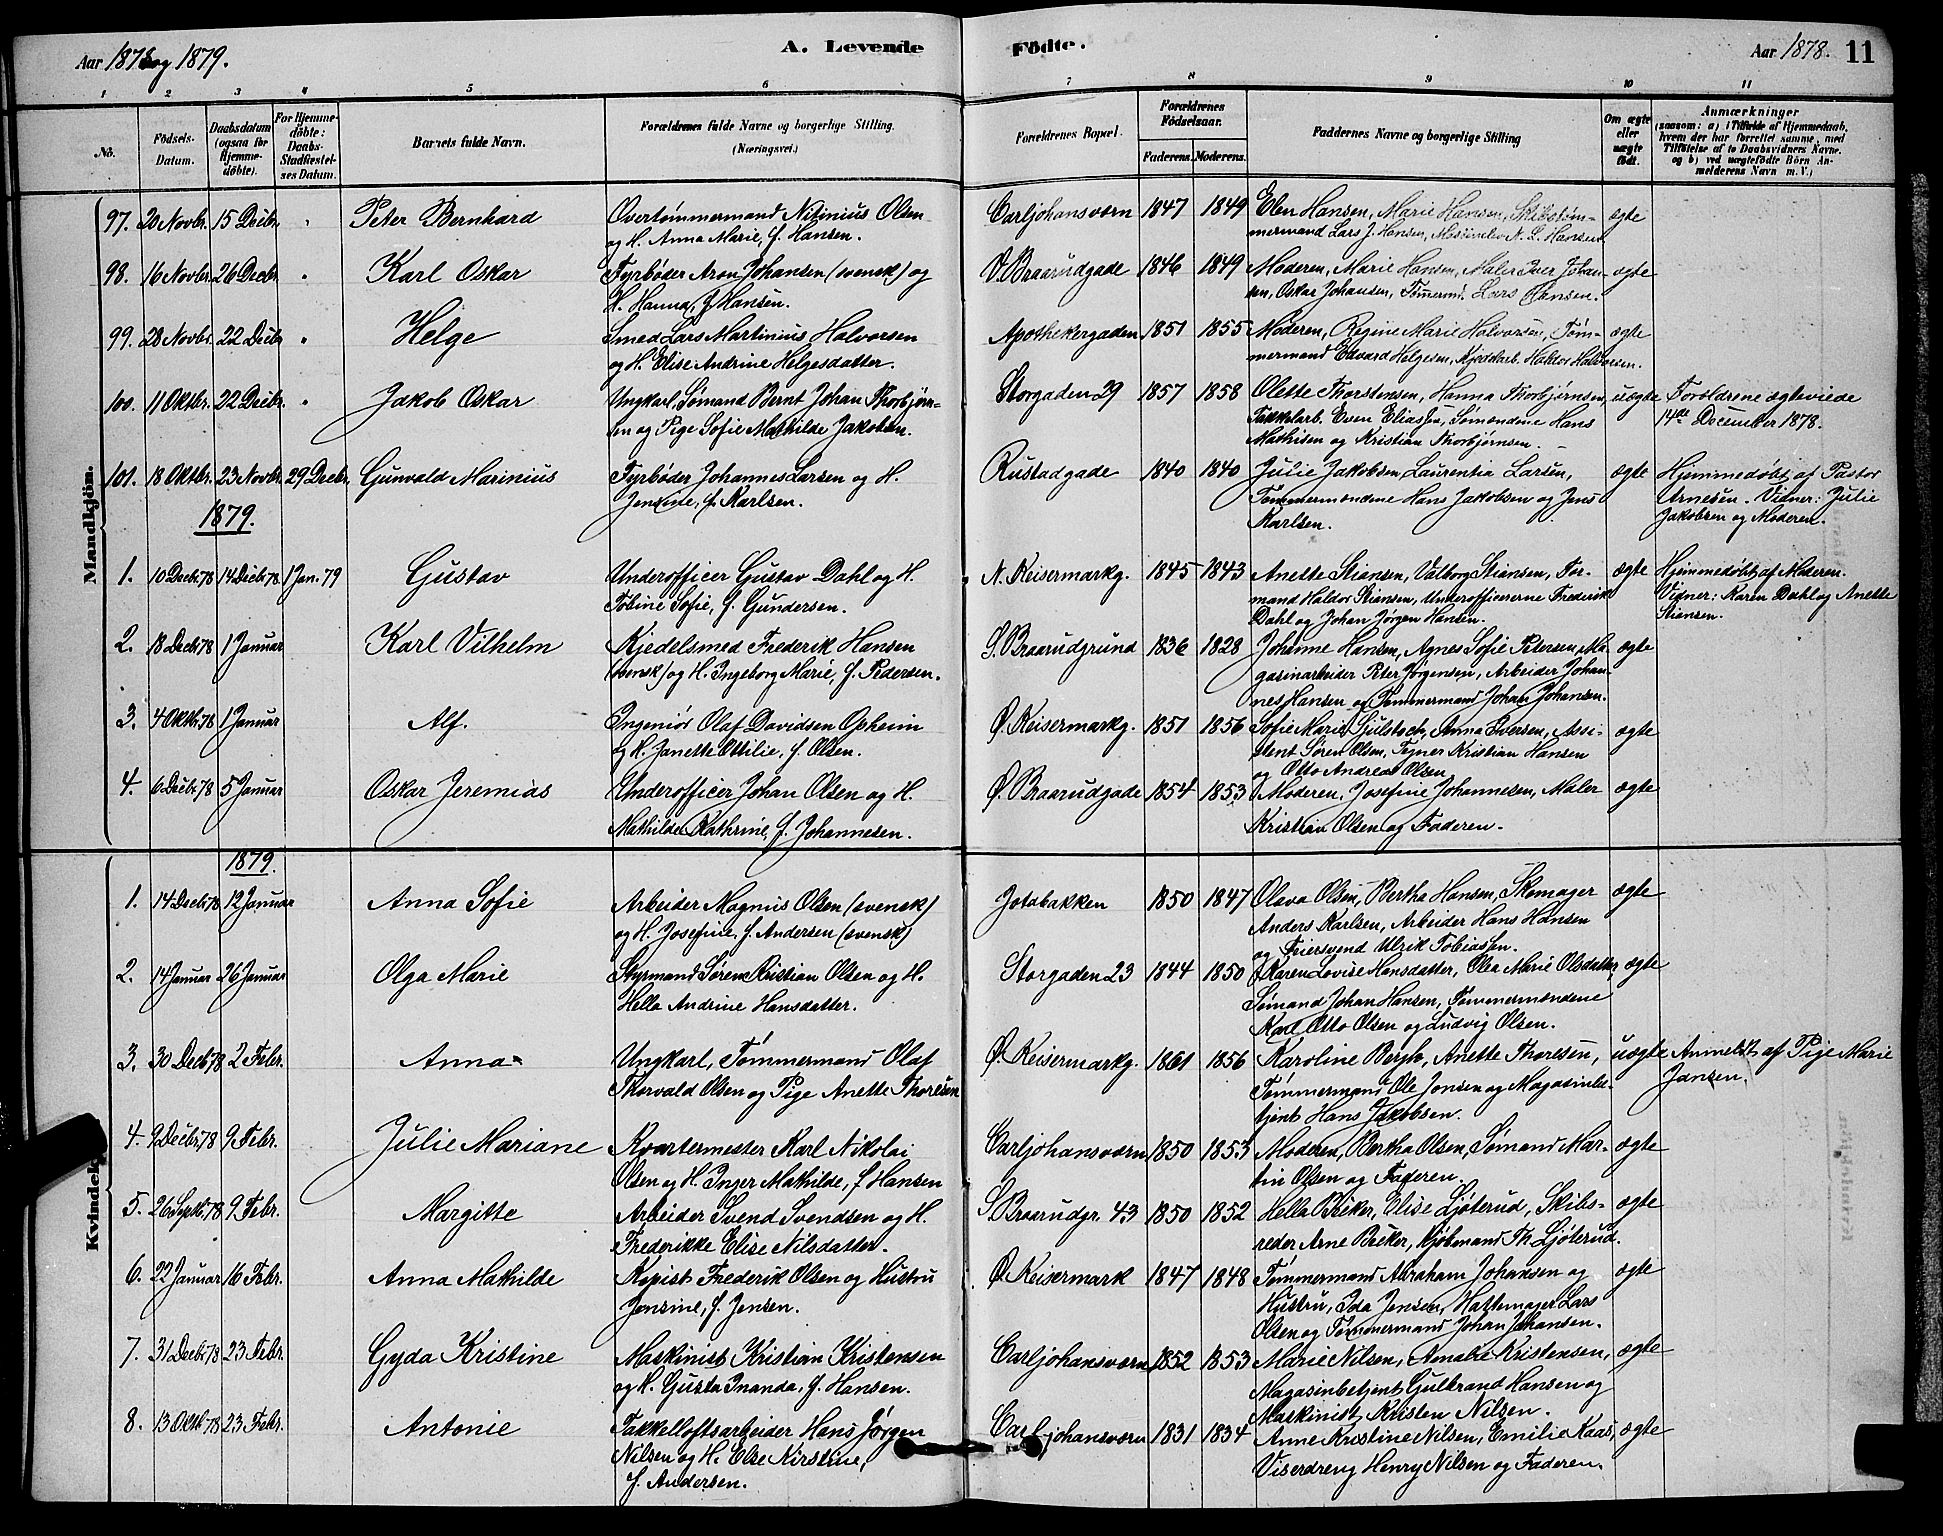 Aar 1878 og 1879.
A. Levende
Födte.
Aar 1878.
11
1 2 3 4 5 6 7 8 9 10 11
No.
Födsels-Datum.
Daabsdatum (ogsaa for Hjemme-döbte).
For Hjemme-döbte: Daabs-Stadfæstel-ses Datum.
Barnets fulde Navn.
Forældrenes fulde Navne og borgerlige Stilling. (Næringsvei.)
Forældrenes Bopæl.
Forældrenes Födselsaar.
Faderens. Moderens.
Faddernes Navne og borgerlige Stilling
Om ægte eller uægte født.
Anmærkninger
(saasom: a) i Tilfælde af Hjemmedaab, hvem der har forrettet samme, med Tilföielse af to Daabsvidners Navne. og b) ved uægtefödte Börn An-melderens Navn m. V.)
Mandkjön.
97. 20 Novbr. 15 Decbr. " Peter Bernhard Overtømmermand Nitinius Olsen Carljohansværn 1847 1849 Elen Hansen, Marie Hansen, Skibstøm- ægte
og H. Anna Marie, f. Hansen. mermand Lars J. Hansen, N. L. Hansen.
98. 16 Novbr. 26 Decbr. " Karl Oskar Fyrbøder Aron Johansen (svensk) og V. Braarudgade 1846 1849 Moderen, Marie Hansen, Maler Iver Johan- ægte
H. Hanna, f. Hansen. sen, Oskar Johansen, Tømmerm. Lars Hansen.
99. 28 Novbr. 22 Decbr. " Helge Smed Lars Martinius Halvorsen Apothekergaden 1851 1855 Moderen, Regine Marie Halvorsen, Tøm- ægte
og H. Elise Andrine Helgesdatter. mermand Edvard Helgesen, Kjedelarb. Haldor Halvorsen.
100. 11 Oktbr. 22 Decbr. " Jakob Oskar Ungkarl, Sømand Bernt Johan Thorbjørn- Storgaden 29 1857 1858 Olette Thorstensen, Hanna Thorbjørnsen, uægte Foreldrene ægteviede
sen og Pige Sofie Mathilde Jakobsen. Takkelarb. Even Eliassen, Sømændene Hans 14de December 1878.
Mathisen og Kristian Thorbjørnsen.
101. 18 Oktbr. 23 Novbr. 29 Decbr. Gunvald Marinius Fyrbøder Johannes Larsen og H. Rustadgade 1840 1840 Julie Jakobsen, Laurentia Larsen, ægte Hjemmedøbt af Pastor
Jensine, f. Karlsen. Tømmermændene Hans Jakobsen og Jens Arnesen. Vidner: Julie
Karlsen. Jakobsen og Moderen.
1879.
1. 10 Decbr. 78 14 Decbr. 78 1 Jan. 79 Gustav Underofficer Gustav Dahl og H. N. Keisermarkg. 1845 1843 Anette Stiansen, Valborg Stiansen, For- ægte Hjemmedøbt af Moderen.
Tobine Sofie, f. Gundersen. mand Haldor Stiansen, Underofficererne Frederik Vidner: Karen Dahl og Anette
Dahl og Johan Jørgen Hansen. Stiansen.
2. 18 Decbr. 78 1 Januar Karl Vilhelm Kjedelsmed Frederik Hansen S. Braarudgrund 1836 1828 Johanne Hansen, Agnes Sofie Petersen, Ma- ægte
(svensk) og H. Ingeborg Marie, f. Pedersen. gasinarbeider Peter Jørgensen, Arbeider Johan-
nes Hansen og Tømmermand Johan Johansen.
3. 4 Oktbr. 78 1 Januar Alf. Ingeniør Olaf Davidsen Opheim Ø. Keisermarkg. 1851 1856 Sofie Marie Gulstsch, Anna Iversen, Assi- ægte
og H. Janette Ottilie, f. Olsen. stent Søren Olsen, Tegner Kristian Hansen
og Otto Andreas Olsen
4. 6 Decbr. 78 5 Januar Oskar Jeremias Underofficer Johan Olsen og H. Ø. Braarudgade 1854 1853 Moderen, Josefine Johannesen, Maler ægte
Mathilde Kathrine, f. Johannesen. Kristian Olsen og Faderen.
Kvindek.
1879.
1. 14 Decbr. 78 12 Januar Anna Sofie Arbeider Magnus Olsen (svensk) Jotabakken 1850 1847 Olava Olsen, Bertha Hansen, Skomager ægte
og H. Josefine, f. Andersen (svensk) Anders Karlsen, Arbeider Hans Hansen
og Feiersvend Ulrik Tobiassen.
2. 14 Januar 26 Januar Olga Marie Styrmand Søren Kristian Olsen og H. Storgaden 23 1844 1850 Karen Lovise Hansdatter, Olea Marie Olsdatter, ægte
Hella Andrine Hansdatter. Sømand Johan Hansen, Tømmermændene
Karl Otto Olsen og Ludvig Olsen.
3. 30 Decbr. 78 2 Febr. Anna Ungkarl, Tømmermand Olaf Ø. Keisermarkg. 1861 1856 Karoline Bergh, Anette Thoresen, uægte Anmeldt af Pige Marie
Thorvald Olsen og Pige Anette Thoresen Tømmermand Ole Jonsen og Magasinbe- Jansen.
tjent Hans Jakobsen.
4. 9 Decbr. 78 9 Febr. Julie Mariane Kvartermester Karl Nikolai Carljohansværn 1850 1853 Moderen, Bertha Olsen, Sømand Mar- ægte
Olsen og H. Inger Mathilde, f. Hansen tin Olsen og Faderen.
5. 26 Septbr. 78 9 Febr. Margitte Arbeider Svend Svendsen og H. S. Braarudgr. 43 1850 1852 Hella Beker, Elise Ljøterud, Skibs- ægte
Frederikke Elise Nilsdatter. reder Arne Beker, Kjøbmand Th. Ljøterud.
6. 22 Januar 16 Febr. Anna Mathilde Kopist Frederik Olsen og Hustru Ø. Keisermark 1847 1848 Tømmermand Abraham Johansen og ægte
Jensine, f. Jensen. Hustru, Ida Jensen, Hattemager Lars
Olsen og Tømmermand Johan Johansen.
7. 31 Decbr. 78 23 Febr. Gyda Kristine Maskinist Kristian Kristensen Carljohansværn 1852 1853 Marie Nilsen, Amalie Kristensen, ægte
og H. Gusta Inanda, f. Hansen. Magasinbetjent Gulbrand Hansen og
Maskinist Kristen Nilsen.
8. 13 Oktbr. 78 23 Febr. Antonie Takkelloftsarbeider Hans Jørgen Carljohansværn 1831 1834 Anne Kristine Nilsen, Emilie Kaas, ægte
Nilsen og H. Else Kirstine, Viserdreng Henry Nilsen og Faderen.
f. Andersen.